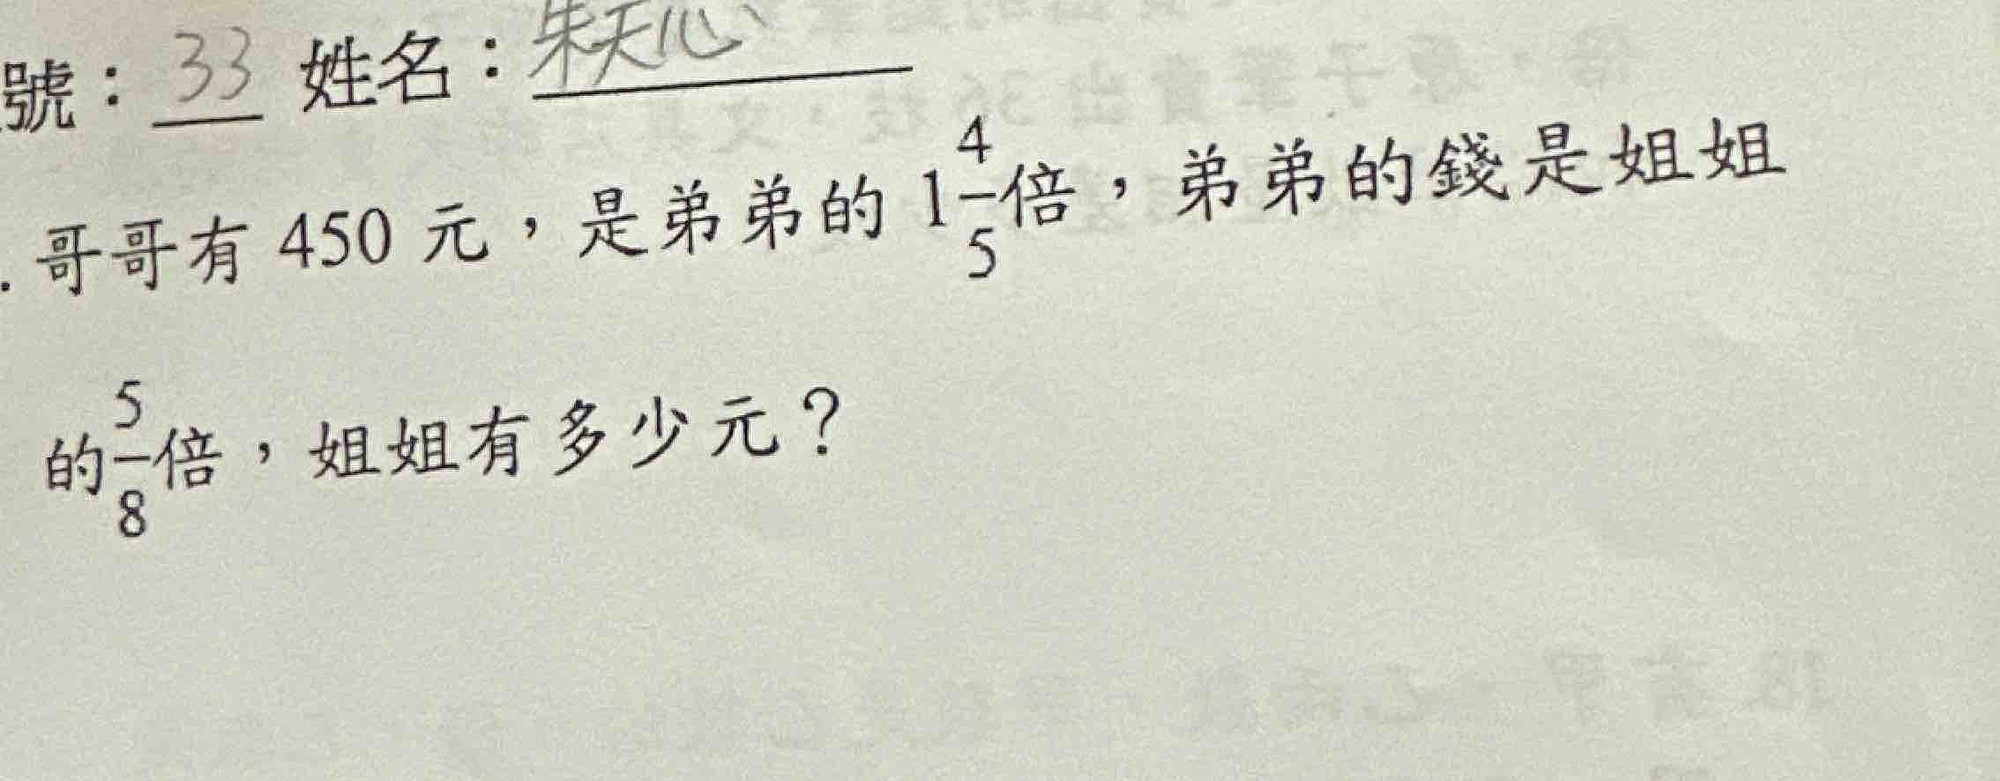 號：33 姓名：朱天心
. 哥哥有 450 元，是弟弟的 1 4/5 倍，弟弟的錢是姐姐
的 5/8 倍，姐姐有多少元？